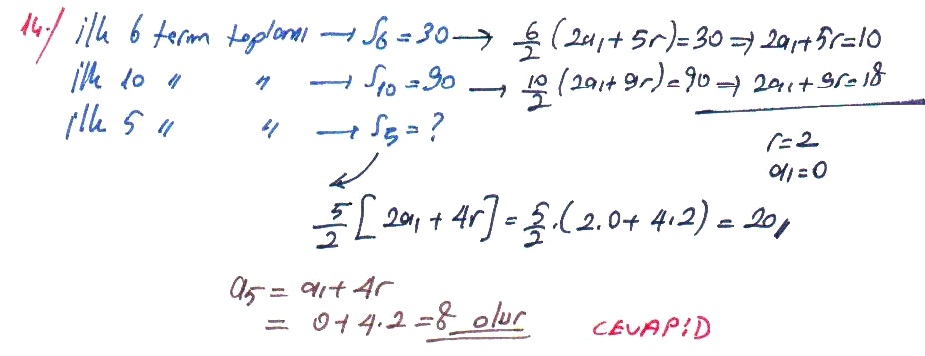 14-) ilk 6 terim toplamı → S₆ = 30 → 6/2 (2a₁ + 5r) = 30 ⇒ 2a₁ + 5r = 10
ilk 10 " " → S₁₀ = 90 → 10/2 (2a₁ + 9r) = 90 ⇒ 2a₁ + 9r = 18
ilk 5 " " → S₅ = ?
r = 2
a₁ = 0
5/2 [2a₁ + 4r] = 5/2 . (2.0 + 4.2) = 20,
a₅ = a₁ + 4r
= 0 + 4.2 = 8 olur
CEVAP: D